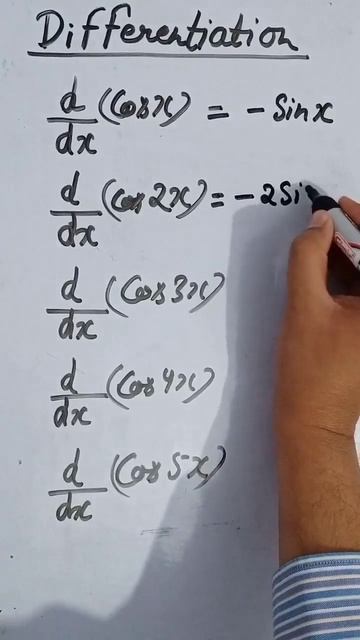 Differentiation
d/dx (Cosx) = - Sinx
d/dx (Cos2x) = - 2Si
d/dx (Cos3x)
d/dx (Cos4x)
d/dx (Cos5x)